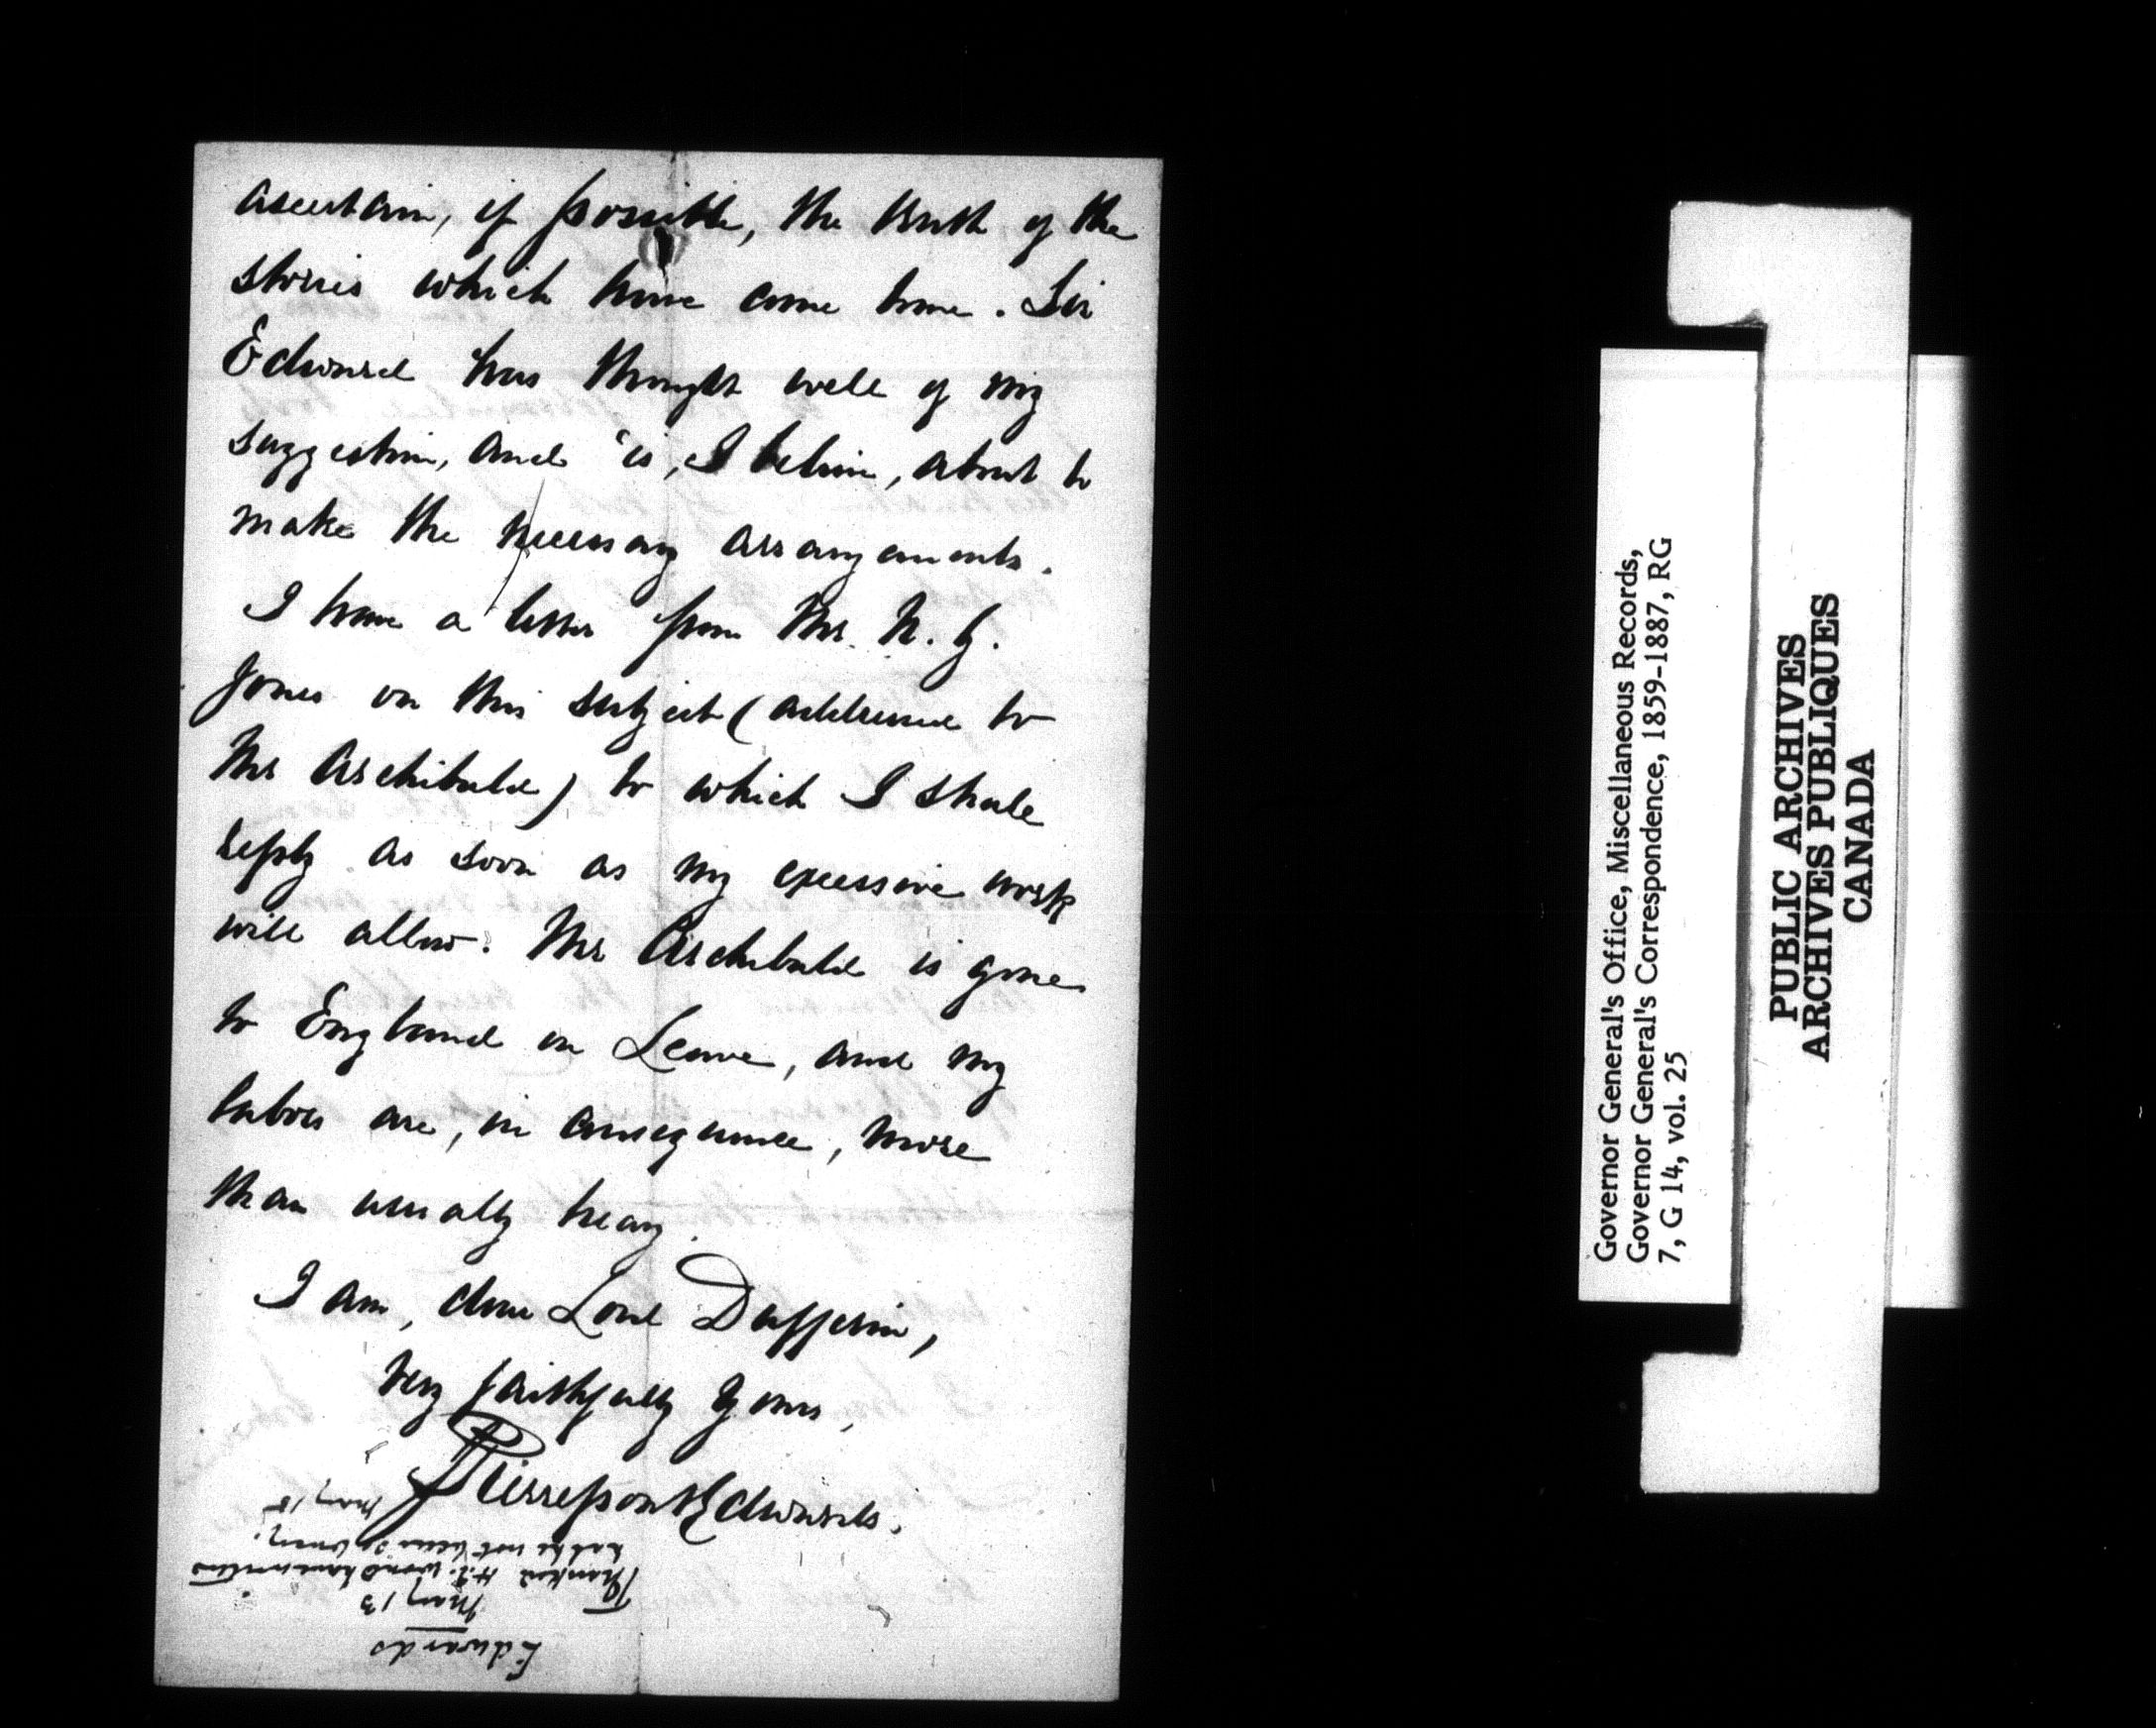 ascertain, if possible, the truth of the
stories which have come home. Sir
Edward has thought well of my
suggestion, and is, I believe, about to
make the necessary arrangements.
I have a letter from Mr. N. G.
Jones on this subject (addressed to
Mr Archibald) to which I shall
reply as soon as my excessive work
will allow. Mr Archibald is gone
to England on Leave, and my
labors are, in consequence, more
than usually heavy.
I am, dear Lord Dufferin,
Very faithfully Yours,
Pierrepont Edwards.
Edwards
May 13
Thanked H.E. would have written
had he not been so busy.
May 15
Governor General's Office, Miscellaneous Records,
Governor General's Correspondence, 1859-1887, RG
7, G 14, vol. 25
PUBLIC ARCHIVES
ARCHIVES PUBLIQUES
CANADA